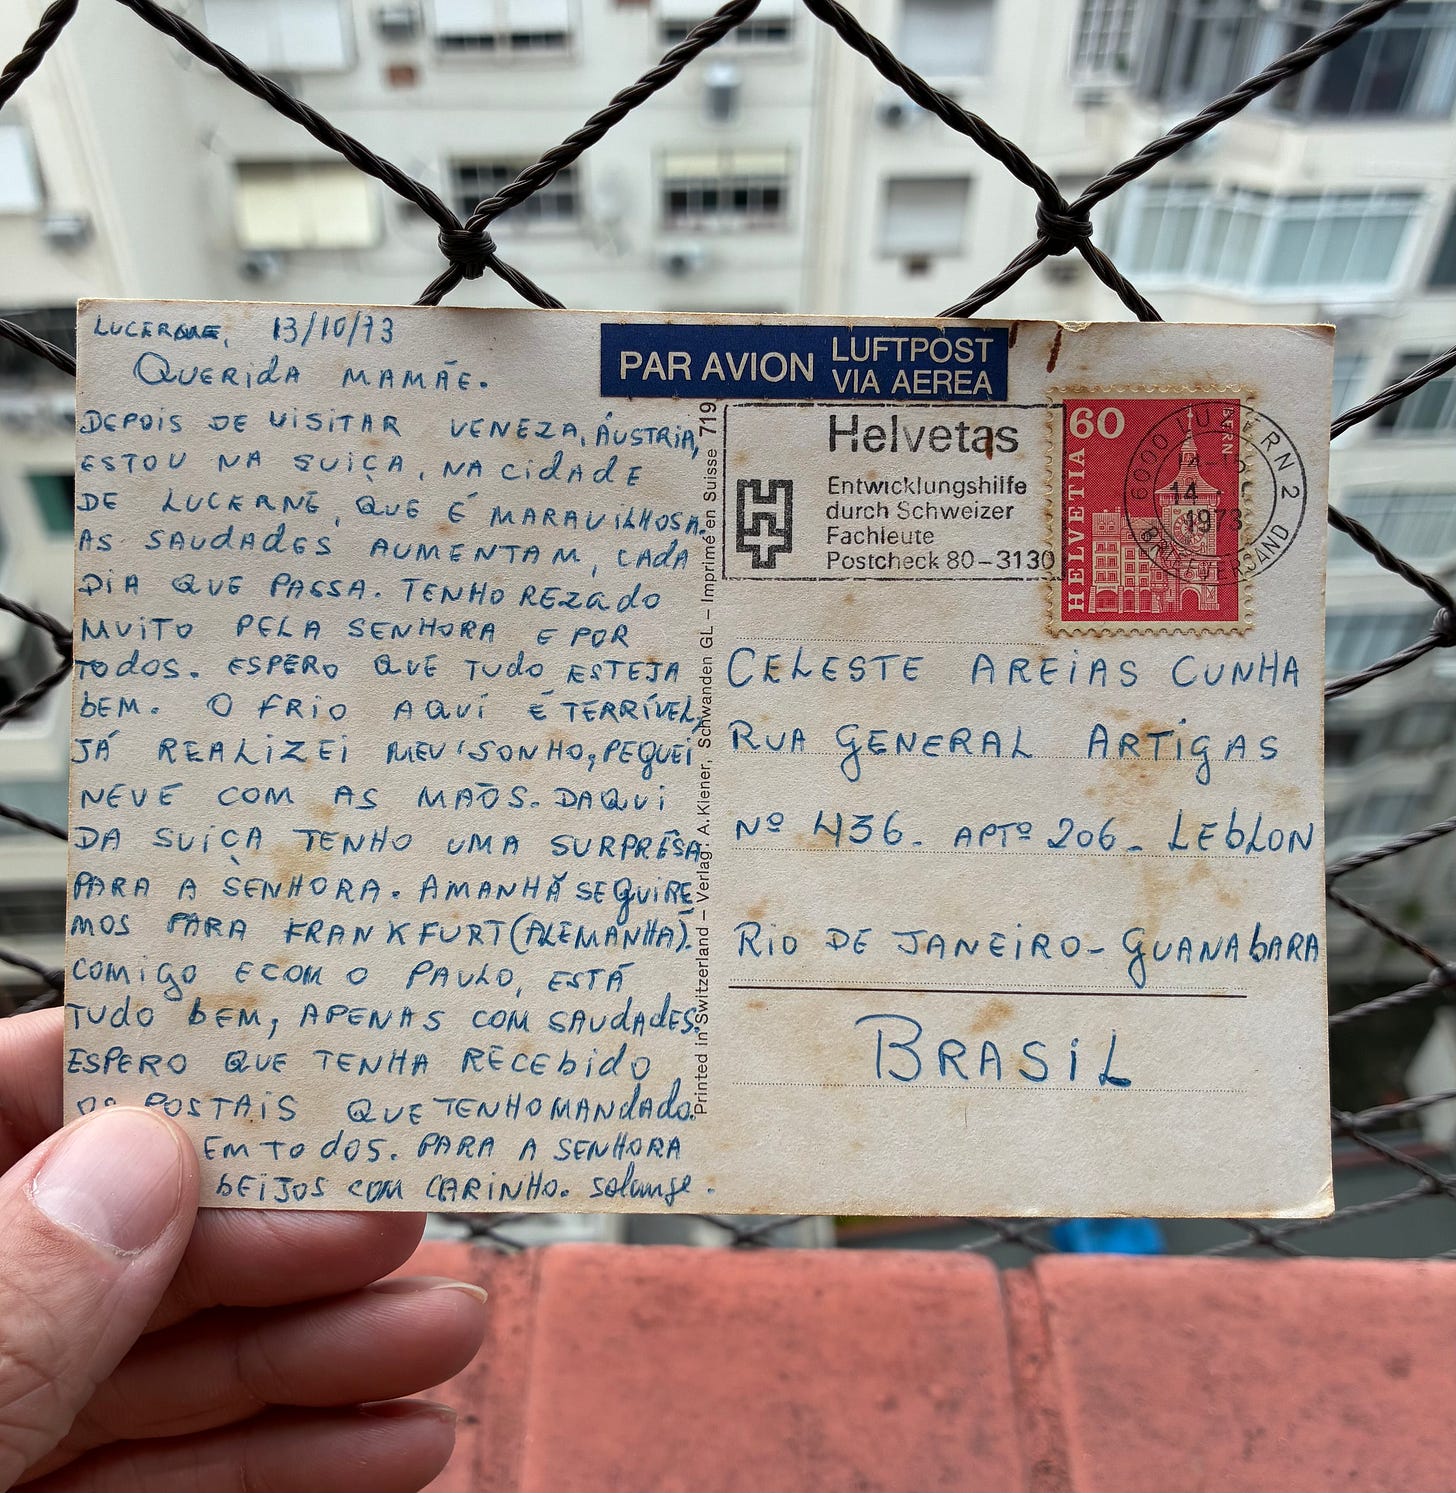 LUCERNE, 13/10/73
QUERIDA MAMÃE.
DEPOIS DE VISITAR VENEZA, ÁUSTRIA,
ESTOU NA SUIÇA, NA CIDADE
DE LUCERNE, QUE É MARAVILHOSA.
AS SAUDADES AUMENTAM, CADA
DIA QUE PASSA. TENHO REZADO
MUITO PELA SENHORA E POR
TODOS. ESPERO QUE TUDO ESTEJA
BEM. O FRIO AQUI É TERRÍVEL,
JÁ REALIZEI MEU SONHO, PEGUEI
NEVE COM AS MÃOS. DAQUI
DA SUIÇA TENHO UMA SURPRÊSA
PARA A SENHORA. AMANHÃ SEGUIRE
MOS PARA FRANKFURT (ALEMANHA).
COMIGO E COM O PAULO, ESTÁ
TUDO BEM, APENAS COM SAUDADES.
ESPERO QUE TENHA RECEBIDO
OS POSTAIS QUE TENHO MANDADO.
EM TODOS. PARA A SENHORA
BEIJOS COM CARINHO. Solange.
Printed in Switzerland – Verlag: A. Kiener, Schwanden GL – Imprimé en Suisse 719
PAR AVION LUFTPOST
VIA AEREA
Helvetas
Entwicklungshilfe
durch Schweizer
Fachleute
Postcheck 80–3130
60
BERN
HELVETIA
6000 LUZERN 2
BRIEFVERSAND
14
1973
CELESTE AREIAS CUNHA
RUA GENERAL ARTIGAS
Nº 436. APTº 206. LEBLON
RIO DE JANEIRO – GUANABARA
BRASIL